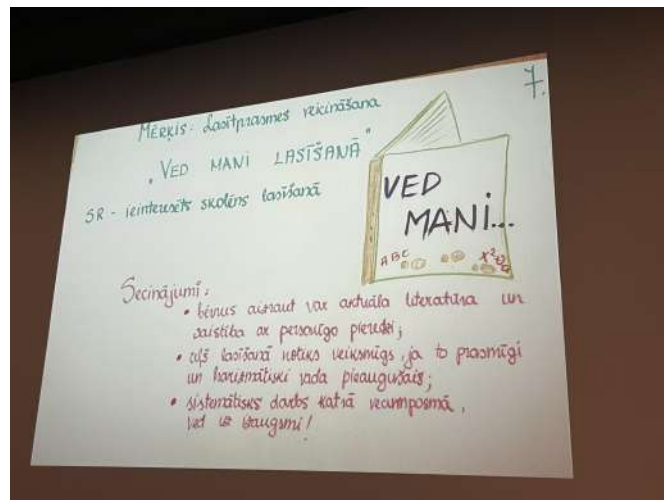 7.
Mērķis: Lasītprasmes veicināšana
"VED MANI LASĪŠANĀ"
SR - ieinteresēts skolēns lasīšanā
VED
MANI...
ABC
Secinājumi:
• bērnus aizraut var aktuāla literatūra un
saistība ar personīgo pieredzi;
• ceļš lasīšanā notiks veiksmīgs, ja to prasmīgi
un harizmātiski vada pieaugušais;
• sistemātisks darbs katrā vecumposmā,
ved uz izaugsmi!